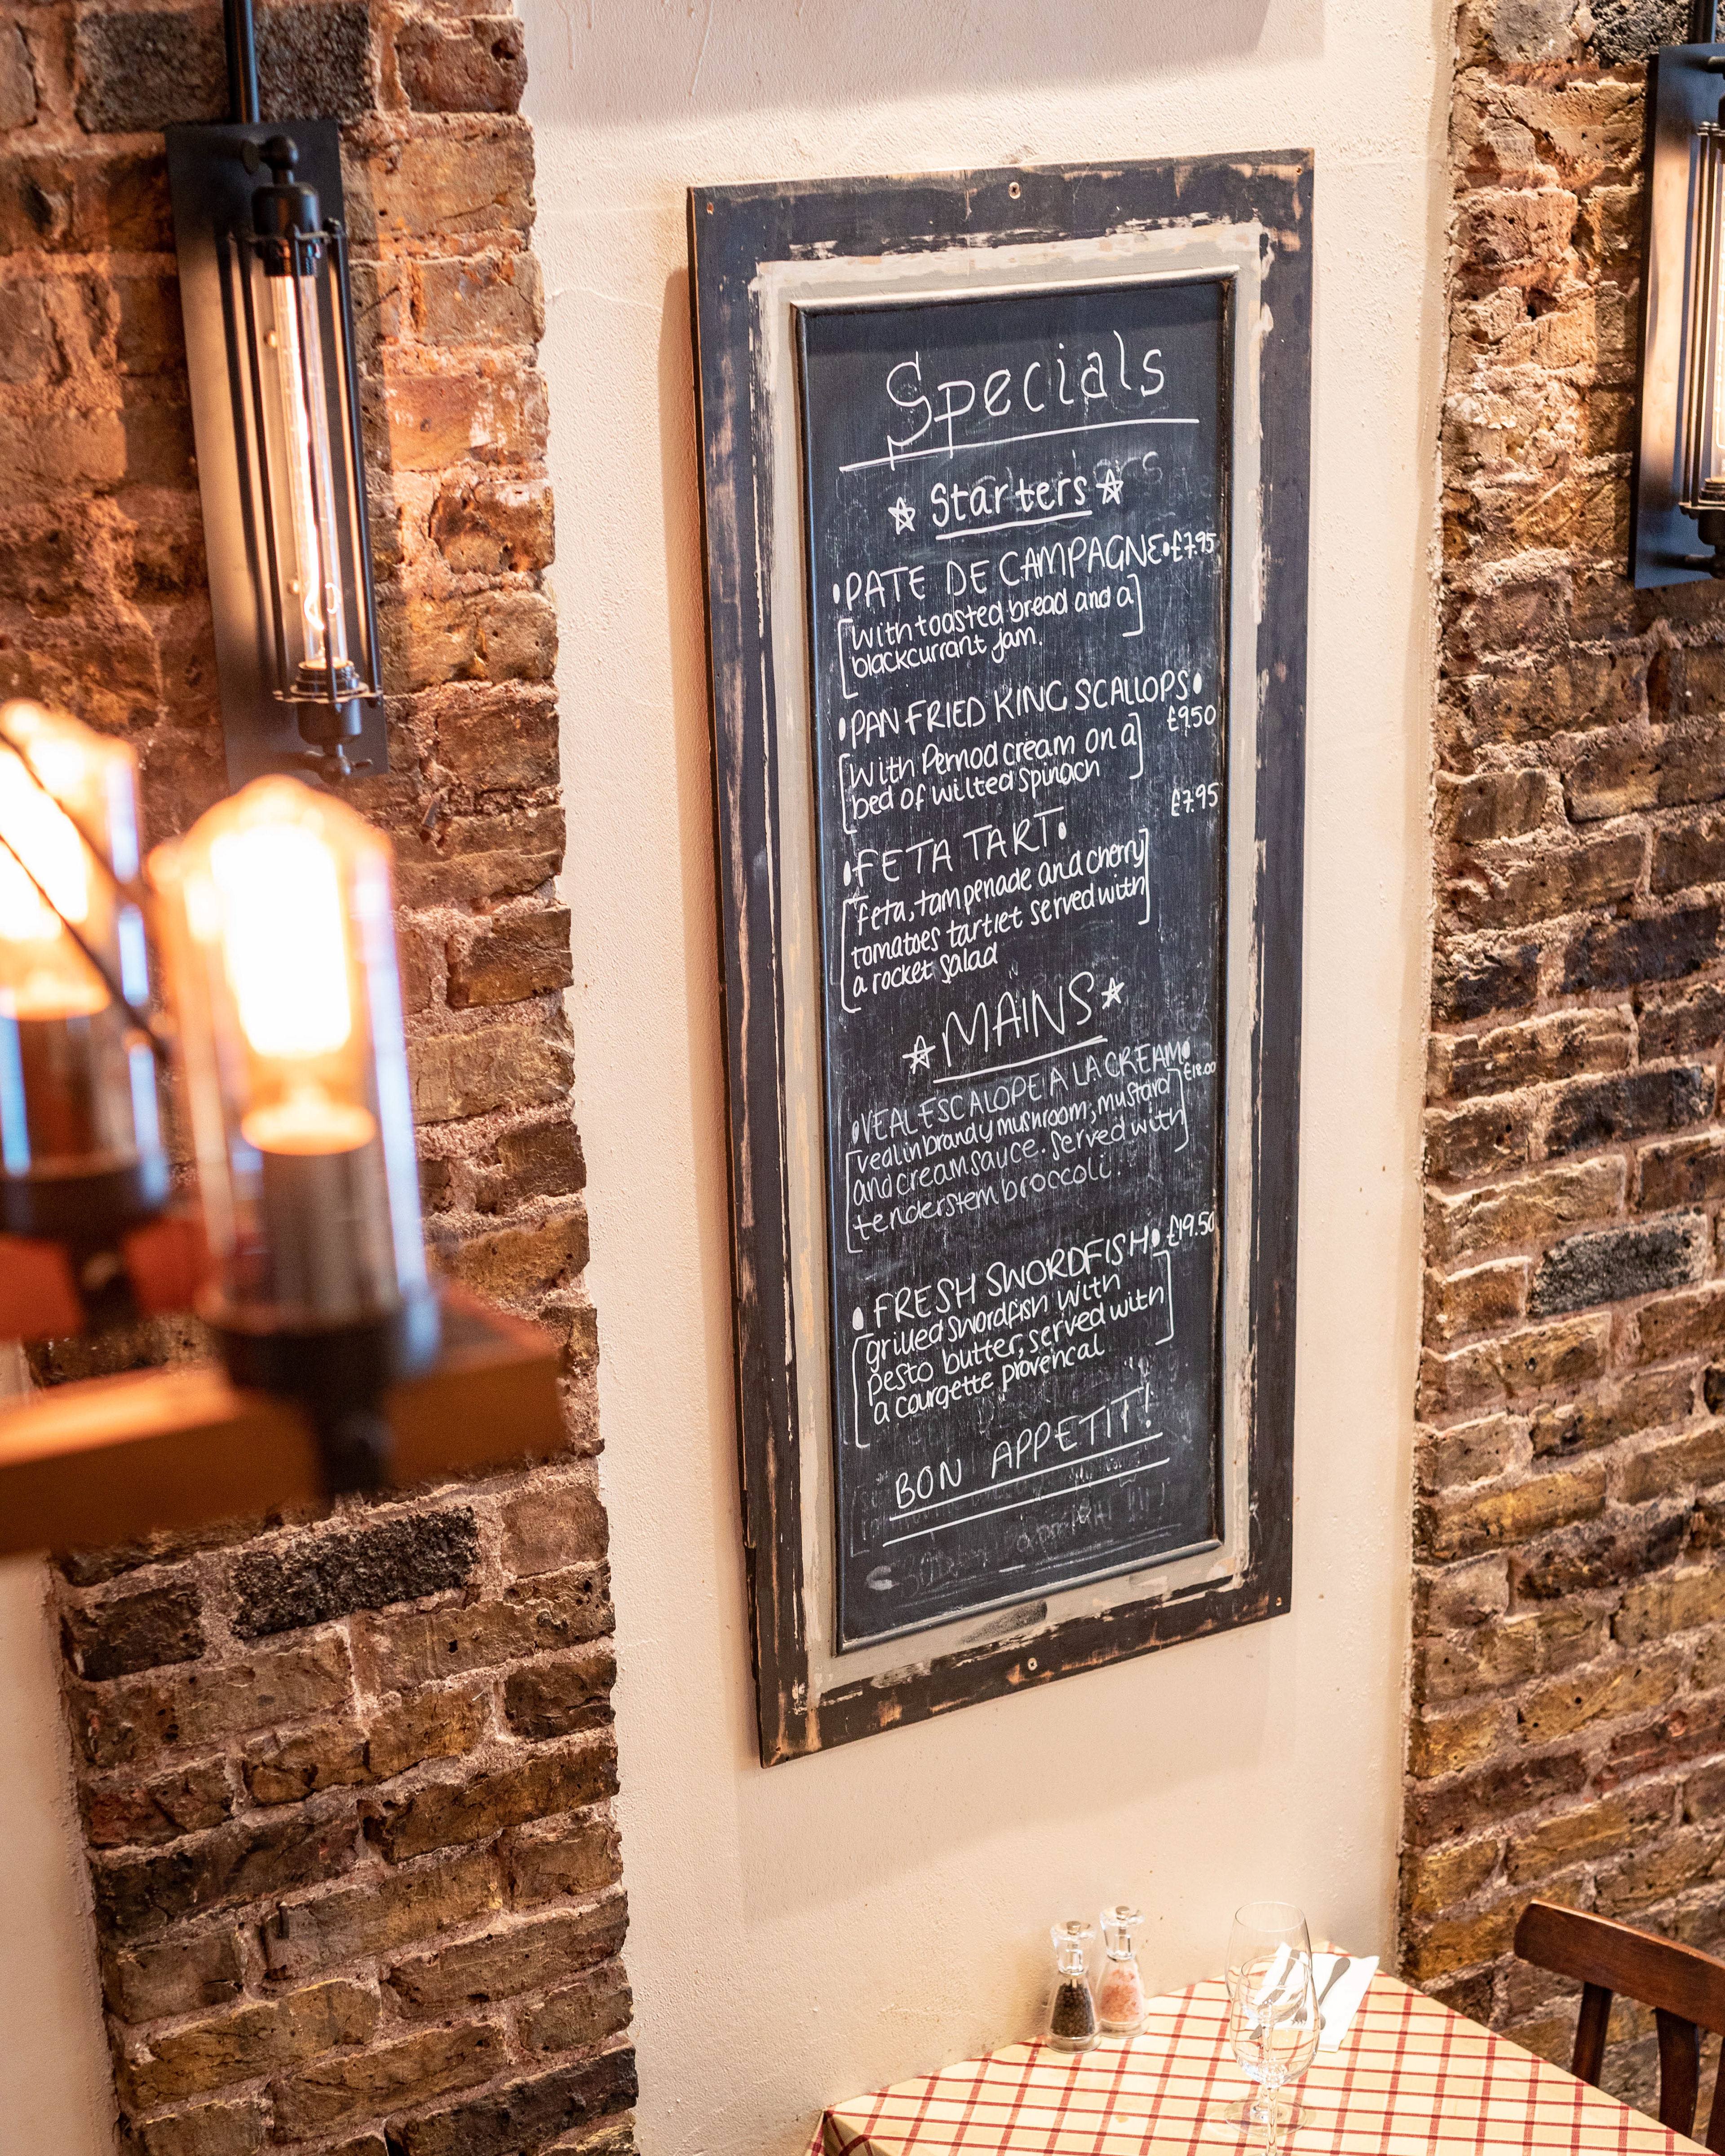 Specials
Starters
PATE DE CAMPAGNE • £7.95
[with toasted bread and a]
blackcurrant jam.
• PAN FRIED KING SCALLOPS •
£9.50
[With Pernod cream on a]
bed of wilted spinach
£7.95
• FETA TART •
[feta, tampenade and cherry]
tomatoes tartlet served with
a rocket salad
MAINS
• VEAL ESCALOPE A LA CREAM •
£18.00
[veal in brandy mushroom, mustard]
and cream sauce. served with
tenderstem broccoli.
• FRESH SWORDFISH • £19.50
[grilled swordfish with]
pesto butter, served with
a courgette provencal
BON APPETIT!